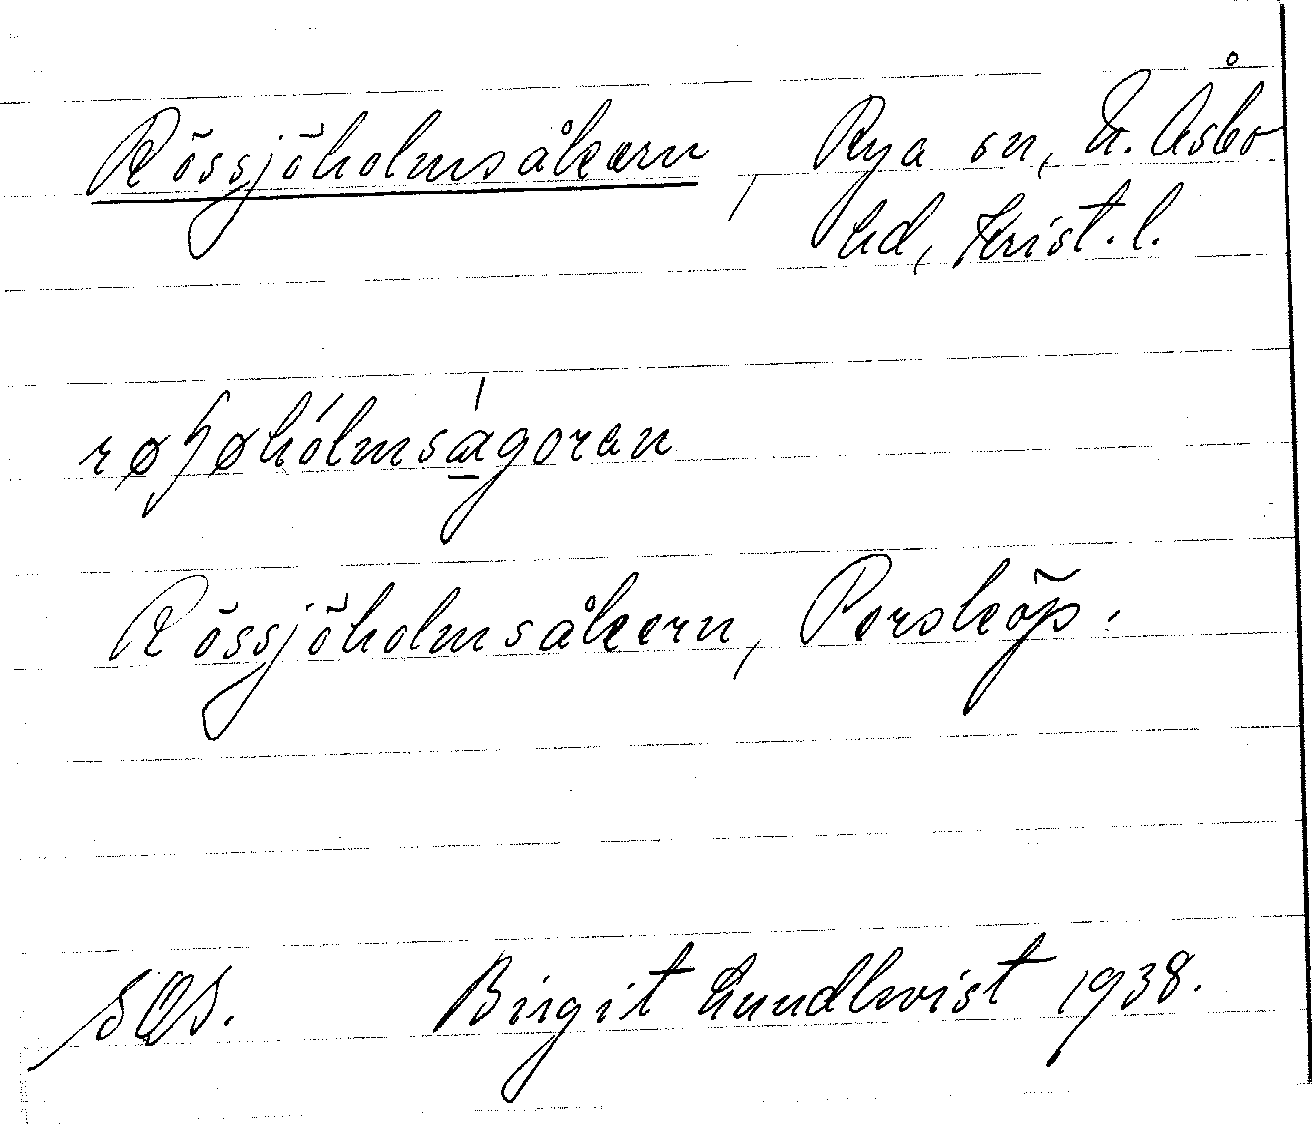 Rössjöholmsåkern, Rya sn, N. Åsbo
hd, Krist. l.
Rössjöholmsåkern, Porsköp.
SOS. Birgit Lundkvist 1938.